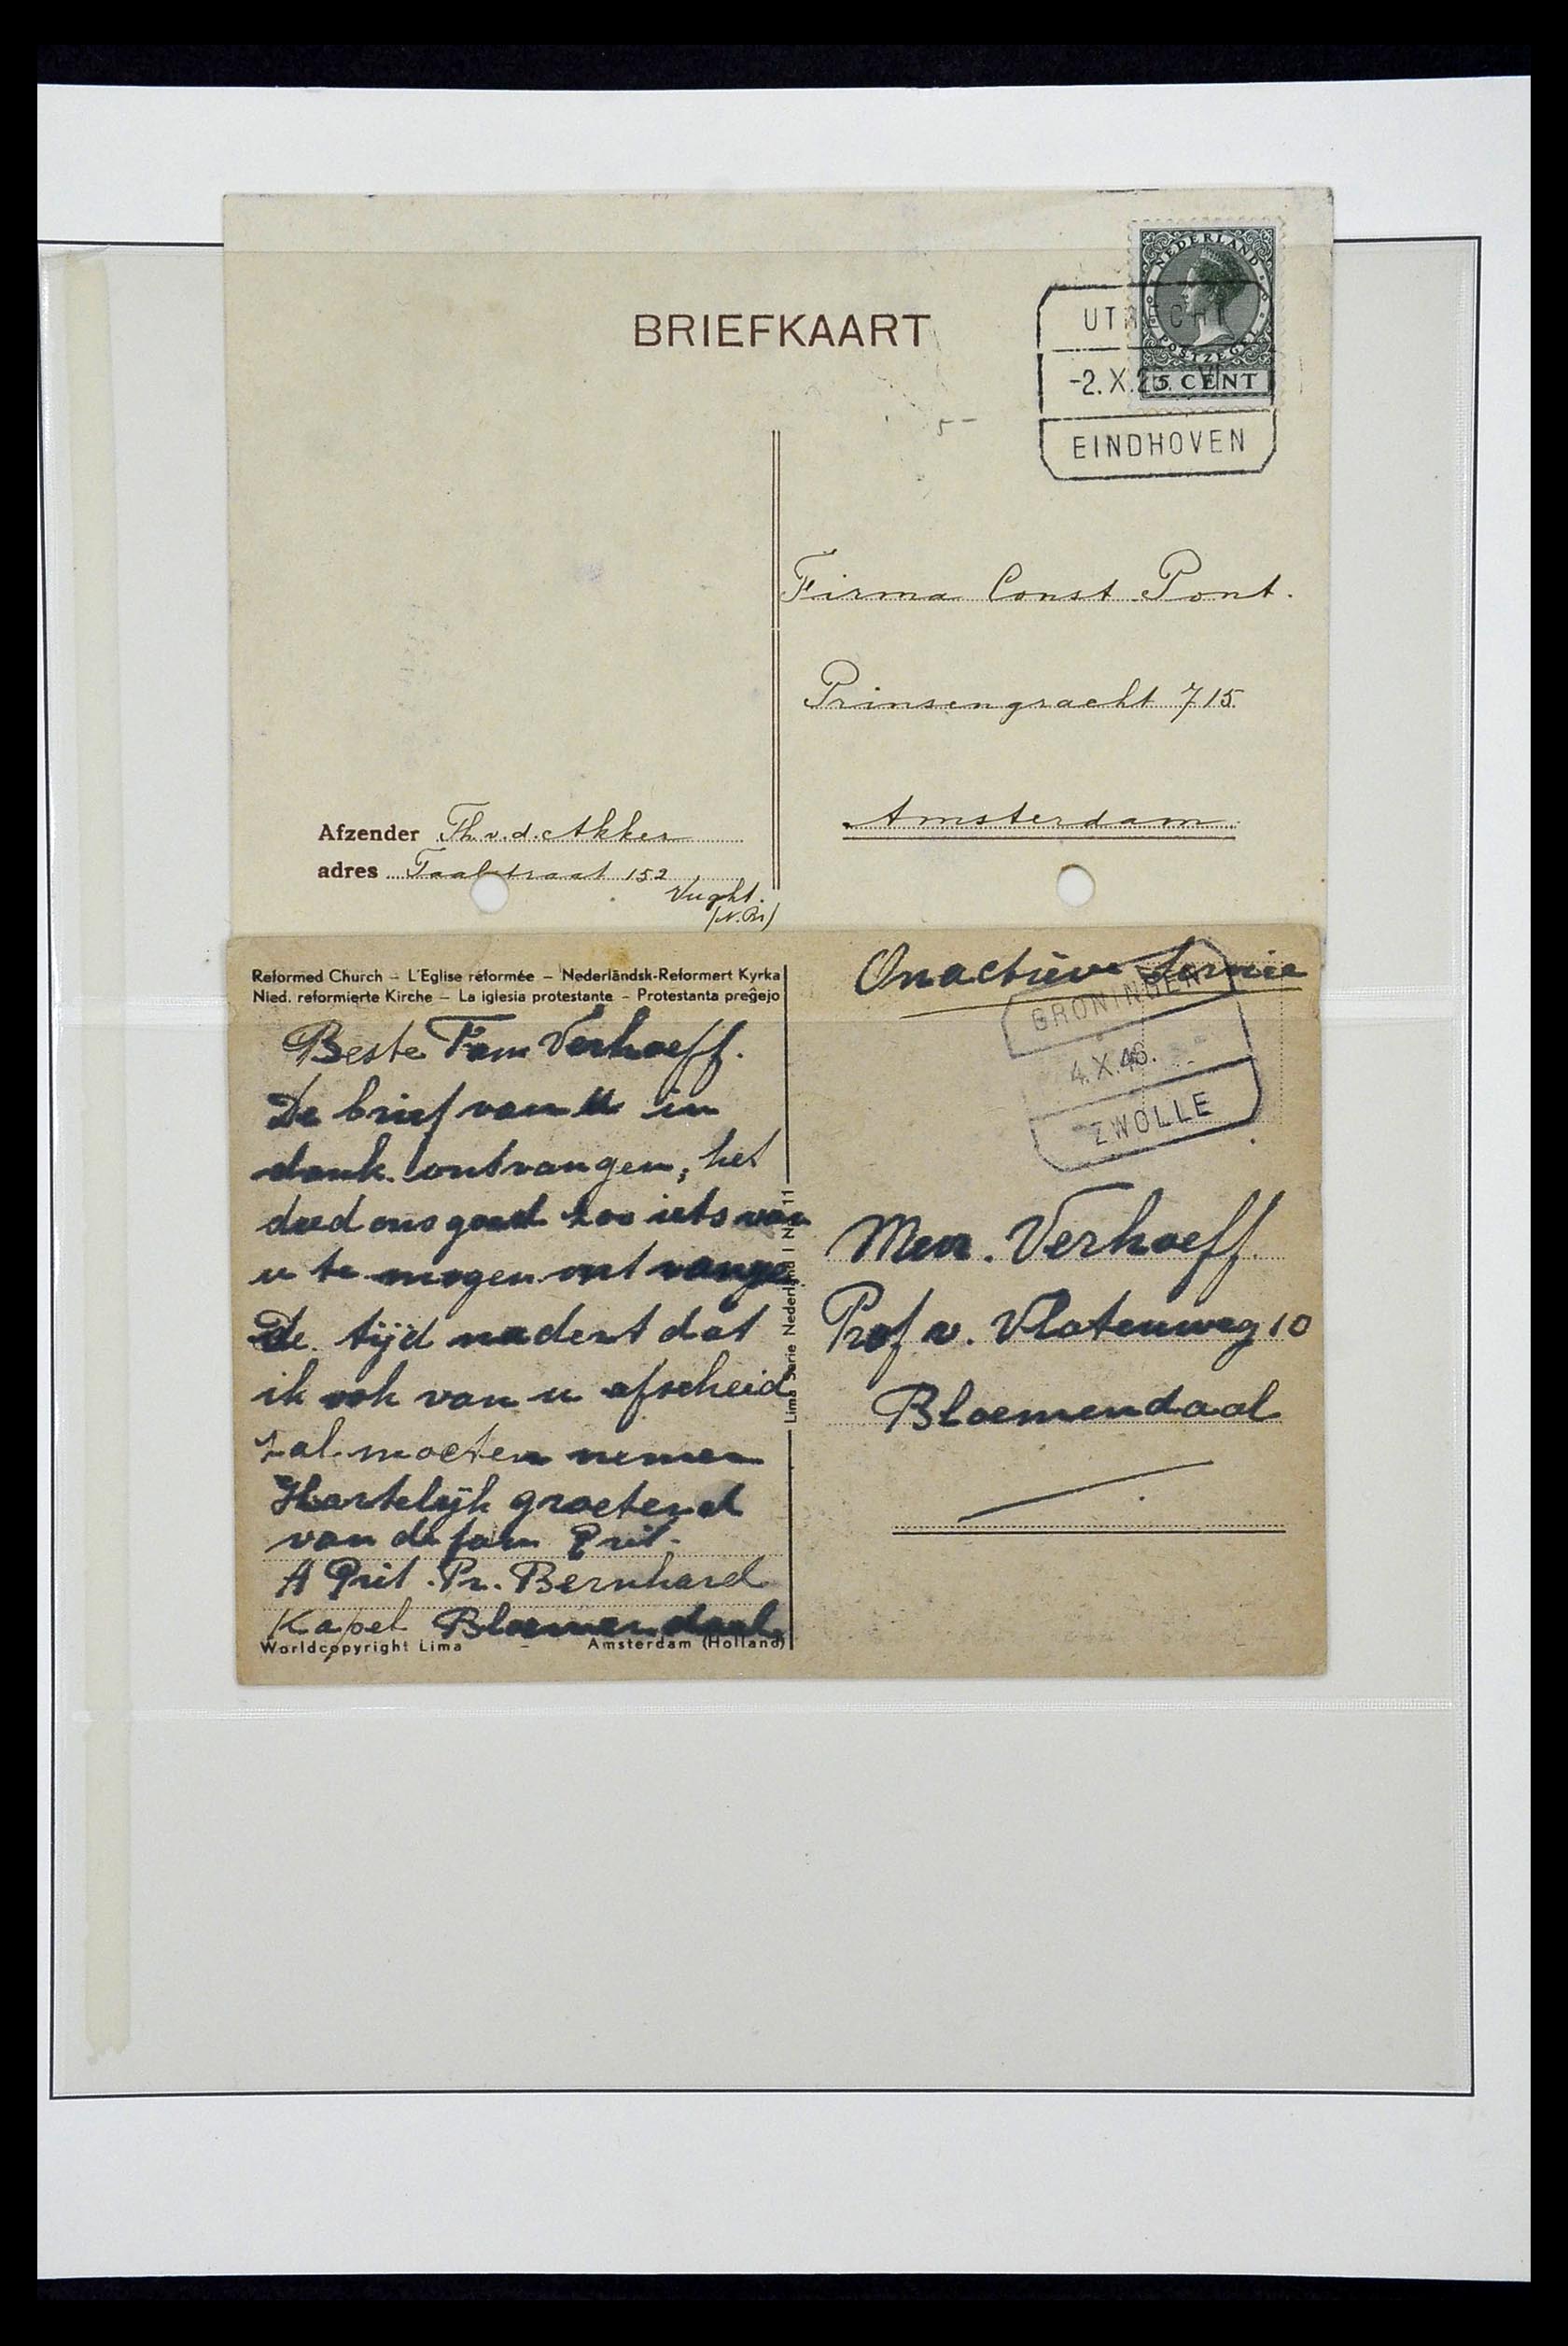 BRIEFKAART
NEDERLAND
POSTZEGEL
5 CENT
UTRECHT
-2.X.2 VI
EINDHOVEN
5-
Firma Const Pont.
Prinsengracht 715.
Amsterdam
Afzender Th. v. d. Akker
adres Taalstraat 152
Vught.
(N.Br)
Reformed Church – L'Eglise réformée – Nederländsk-Reformert Kyrka
Nied. reformierte Kirche – La iglesia protestante – Protestanta preĝejo
Beste Fam Verhoeff.
De brief van U in
dank. ontvangen, het
deed ons goed zoo iets van
u te mogen ontvange
De tijd nadert dat
ik ook van u afscheid
zal moeten nemen
Hartelijk groetend
van de fam Prit.
A Prit. Pr. Bernhard
Kapel Bloemendaal
Worldcopyright Lima – Amsterdam (Holland)
Lima Serie Nederland I N 11
Onactieve Servie
GRONINGEN
4.X.46.
ZWOLLE
Men. Verhoeff.
Prof v. Vlotenweg 10
Bloemendaal